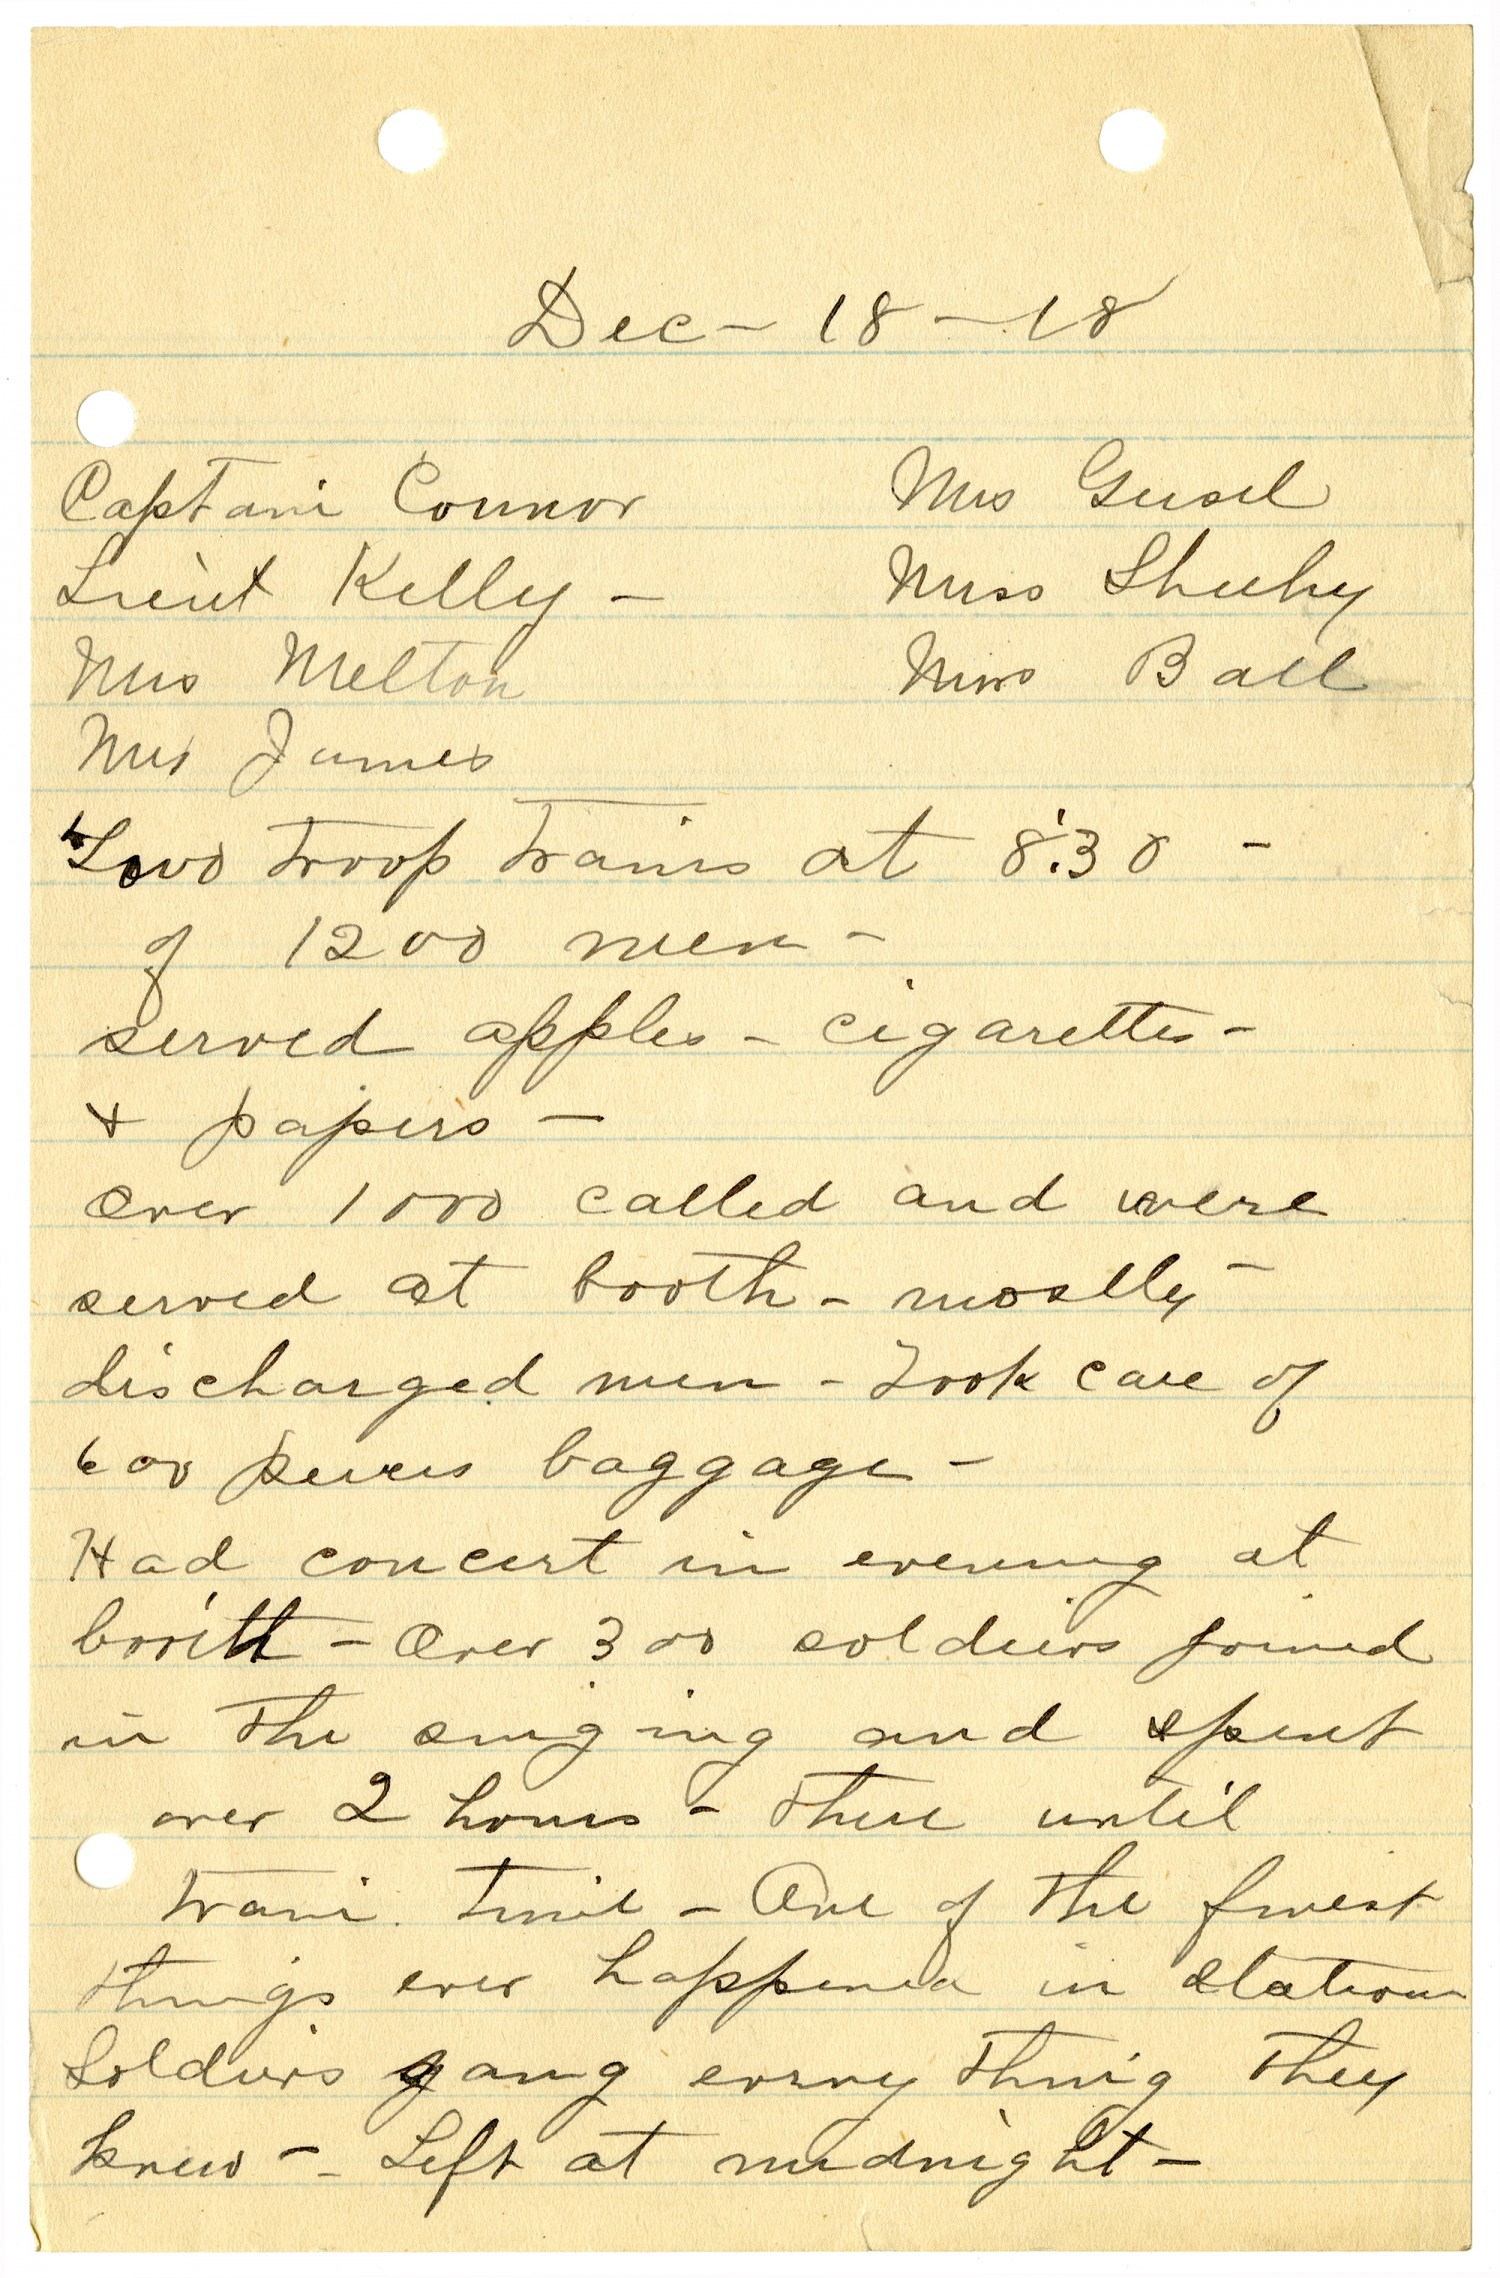 Dec - 18 - 18
Captain Connor
Mrs Geisel
Lieut Kelly -
Miss Sheehy
Mrs Melton
Miss Ball
Mrs James
Two troop trains at 8:30 -
of 1200 men -
served apples - cigarettes -
& papers -
Over 1000 called and were
served at booth - mostly -
discharged men - Took care of
600 pieces baggage -
Had concert in evening at
booth - Over 300 soldiers joined
in the singing and spent
over 2 hours - there until
train time - One of the finest
things ever happened in station
Soldiers gang every thing they
knew - - Left at midnight -